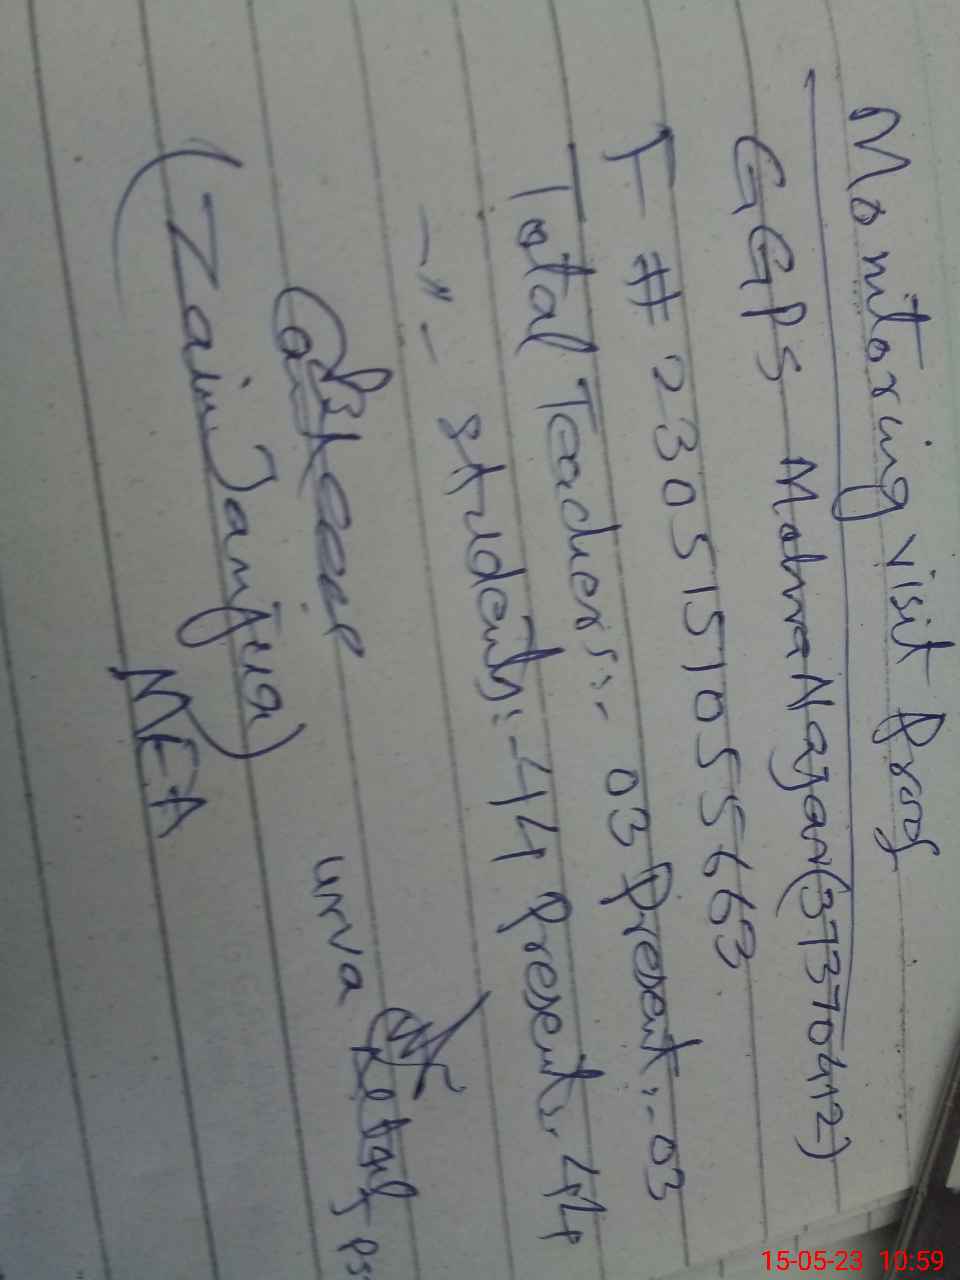 Monitoring visit Proof
GGPS Mohra Nagar (37370412)
F # 2305151055663
Total Teachers:- 03 Present:- 03
-"- students:- 44 Present:- 44
(Zain Janjua)
MEA
urva
15-05-23 10:59